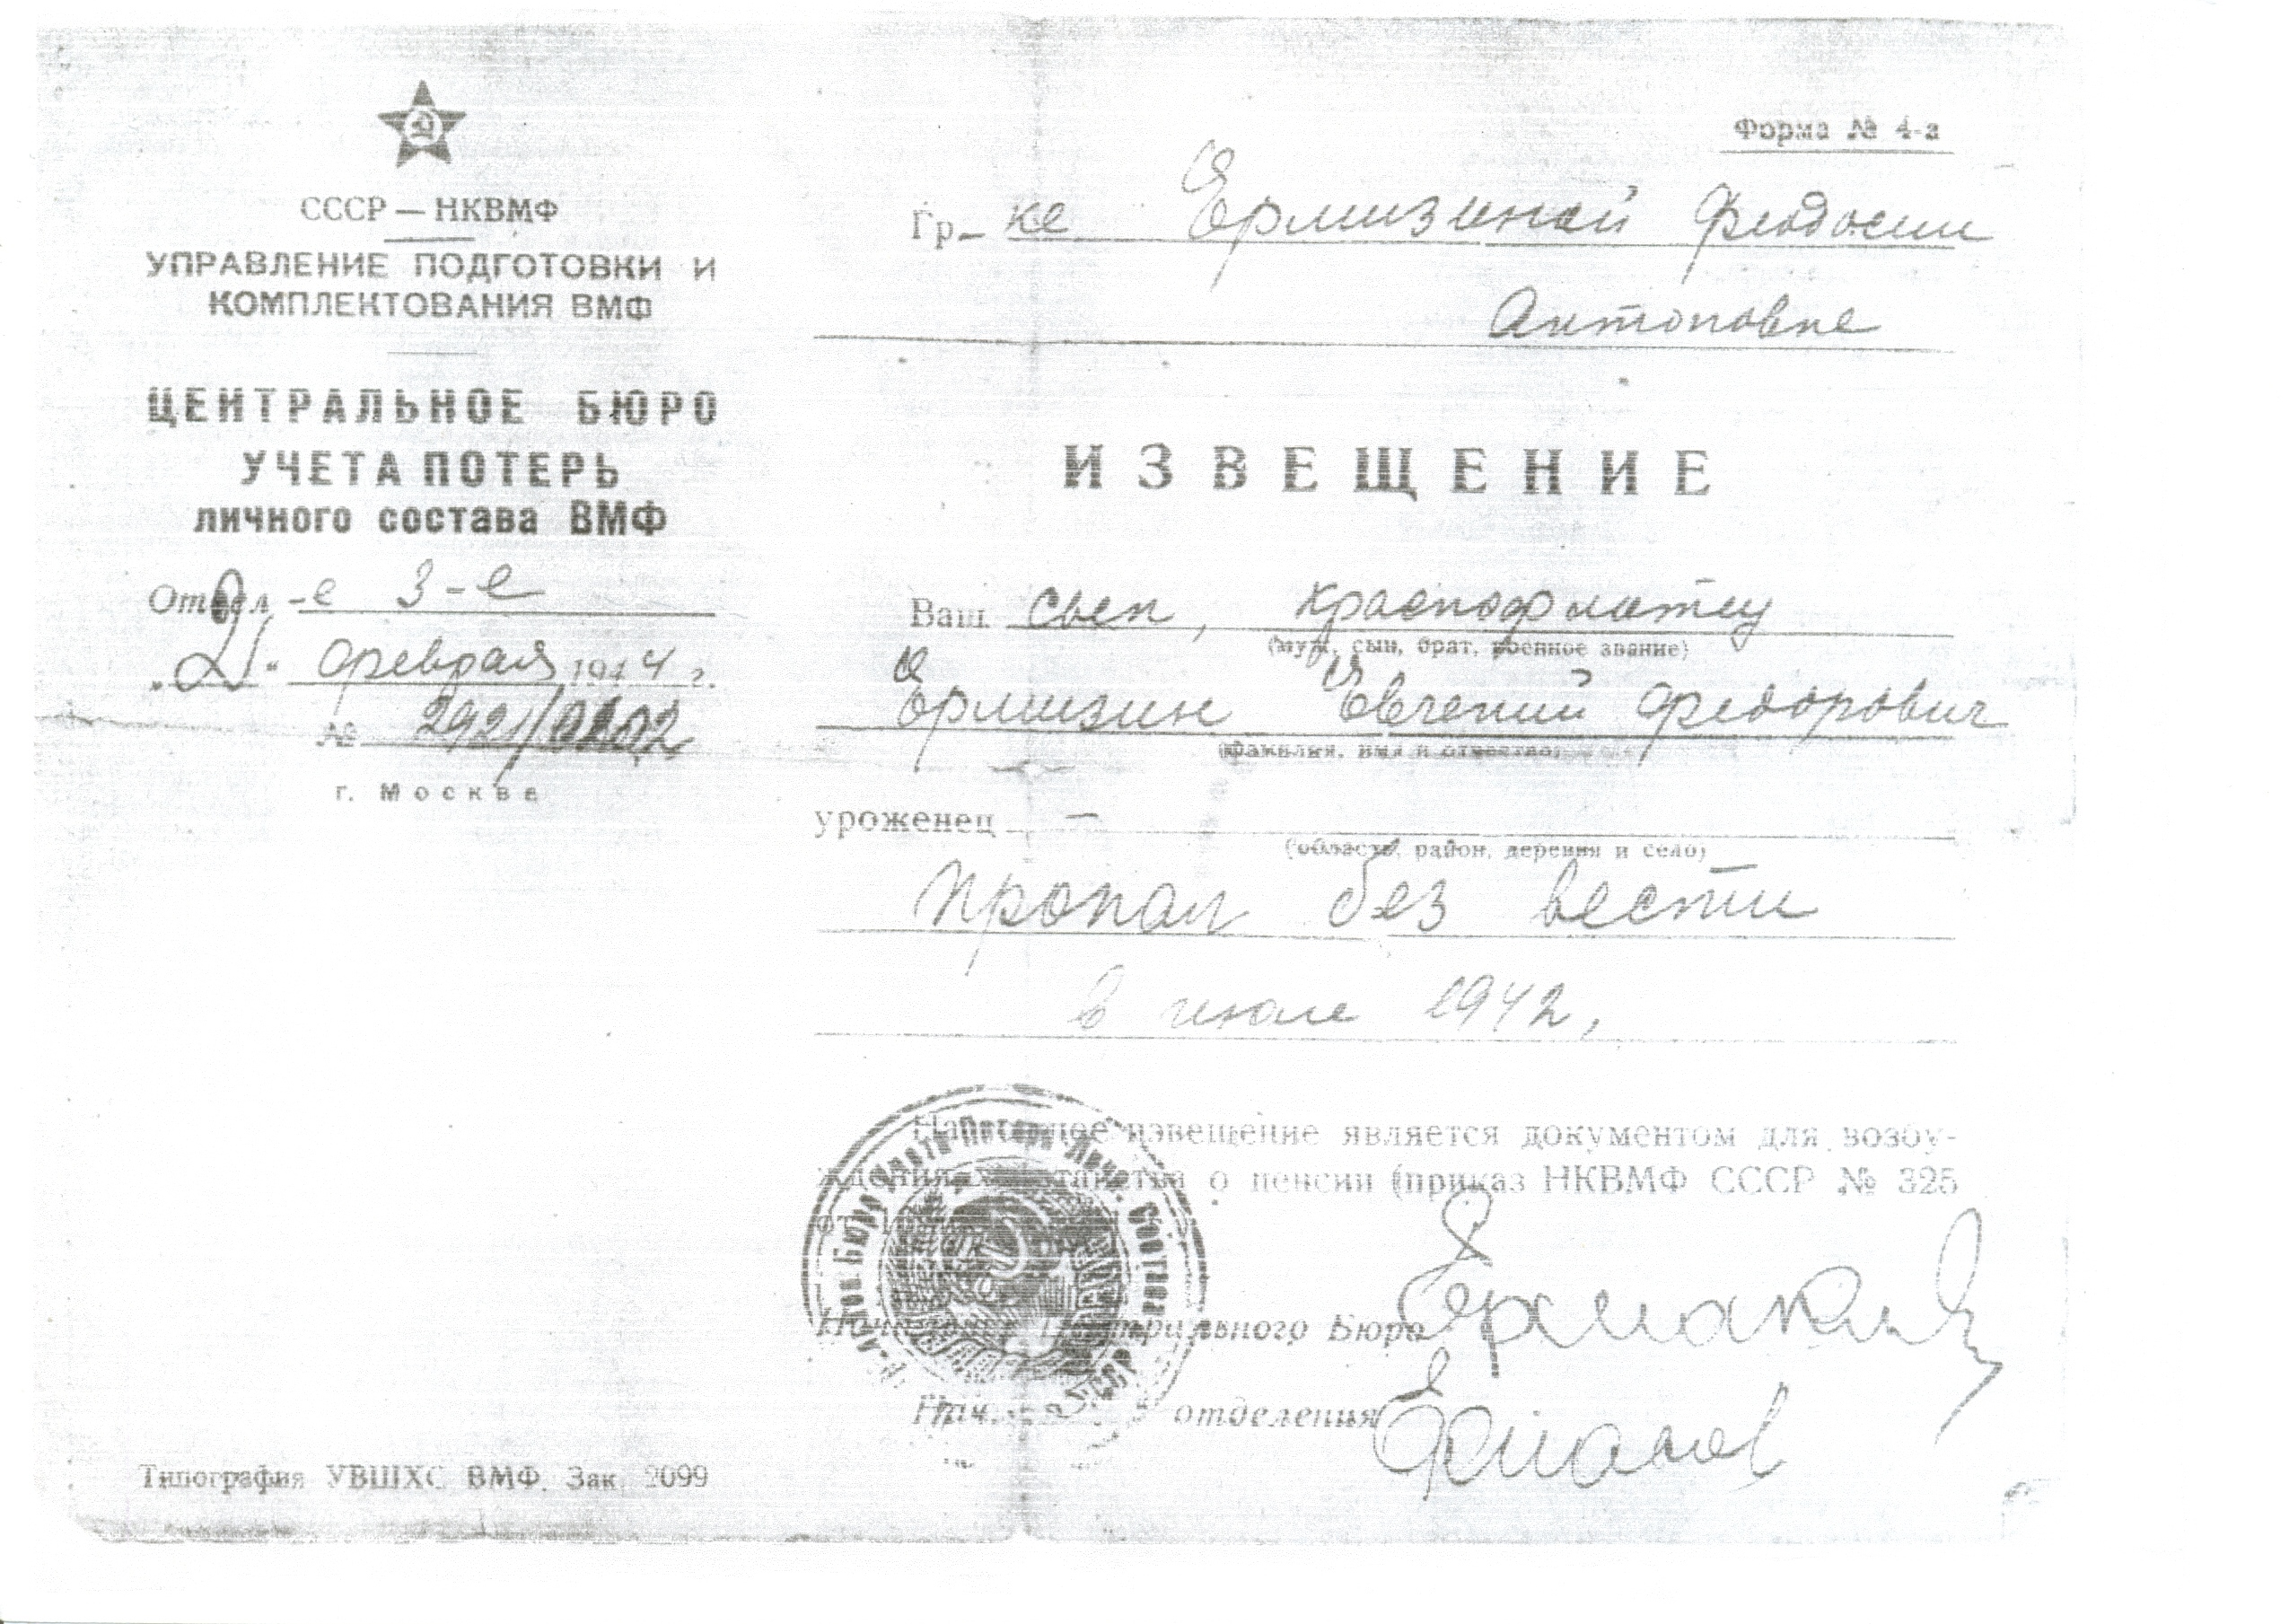 СССР — НКВМФ
УПРАВЛЕНИЕ ПОДГОТОВКИ И
КОМПЛЕКТОВАНИЯ ВМФ
ЦЕНТРАЛЬНОЕ БЮРО
УЧЕТА ПОТЕРЬ
личного состава ВМФ
Отдел -е 3-е
февраля 1944 г.
№ 2921
г. Москва
Форма № 4-а
Гр-ке Ермизиной Феодосии
Антоновне
ИЗВЕЩЕНИЕ
Ваш сын, краснофлотец
(муж, сын, брат, военное звание)
Ермизин Евгений Федорович
(фамилия, имя и отчество)
уроженец —
(область, район, деревня и село)
Пропал без вести
в июле 1942,
Настоящее извещение является документом для возбу-
ждения ходатайства о пенсии (приказ НКВМФ СССР № 325
Начальник Центрального Бюро Ермакин
Нач. отделения
Типография УВШХС ВМФ. Зак. 2099